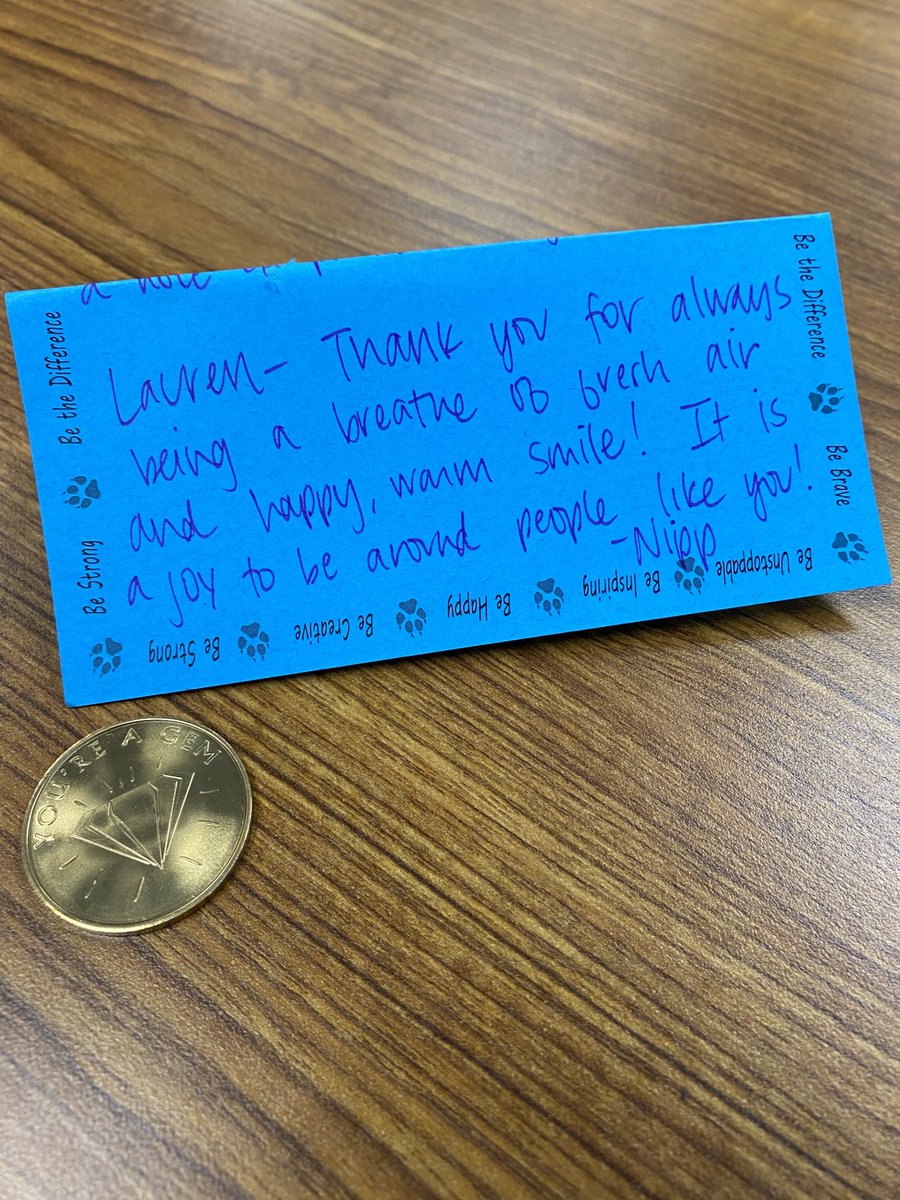 a
Lauren- Thank you for always
being a breathe of fresh air
and happy, warm smile! It is
a joy to be around people like you!
-Nipp
Be the Difference
Be Strong
Be Strong
Be Creative
Be Happy
Be Inspiring
Be Unstoppable
Be Brave
Be the Difference
YOU'RE A GEM